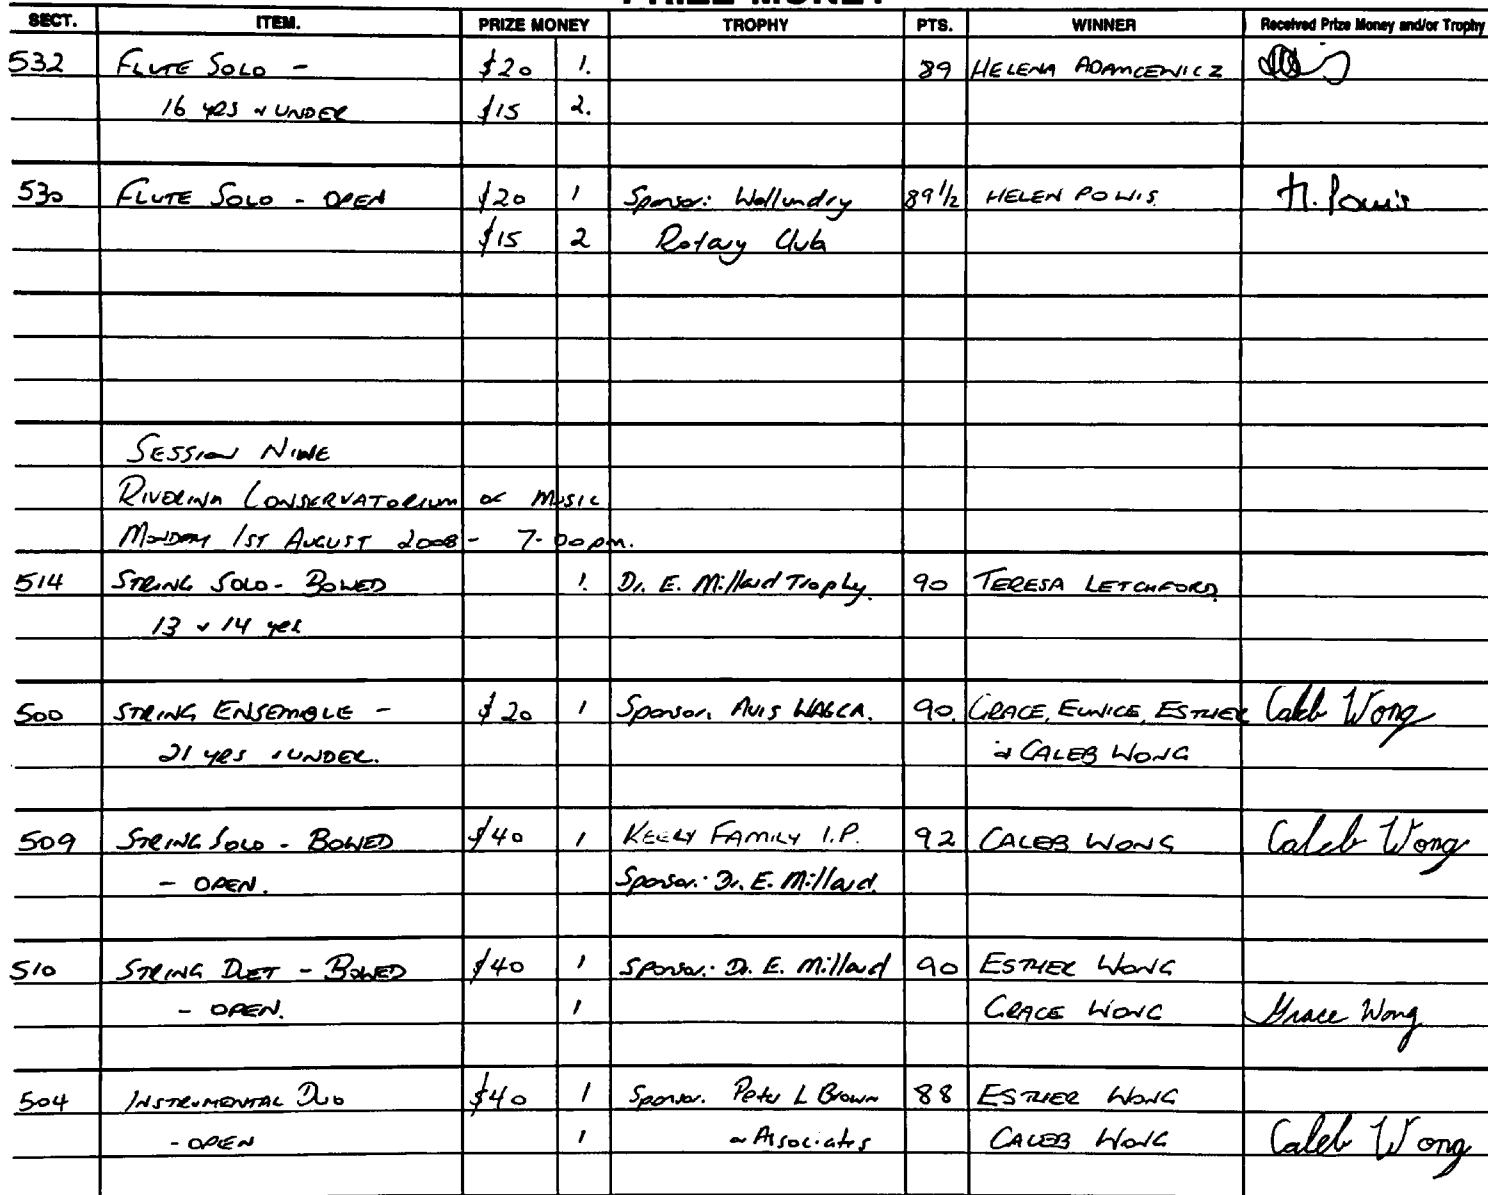 PRIZE MONEY
SECT. ITEM. PRIZE MONEY TROPHY PTS. WINNER Received Prize Money and/or Trophy
532 FLUTE SOLO - $20 1. 89 HELENA ADAMCEWICZ
16 YRS & UNDER $15 2.
530 FLUTE SOLO - OPEN $20 1 Sponsor: Wollundry 89 1/2 HELEN POWIS. H. Powis
$15 2 Rotary Club
SESSION NINE
RIVERINA CONSERVATORIUM OF MUSIC
MONDAY 1ST AUGUST 2008 - 7-00pm.
514 STRING SOLO - BOWED 1. Dr. E. Millard Trophy. 90 TERESA LETCHFORD.
13 & 14 yrs
500 STRING ENSEMBLE - $20 1 Sponsor. AVIS WAGGA. 90. GRACE, EUNICE, ESTHER Caleb Wong
21 YRS & UNDER. & CALEB WONG
509 STRING SOLO - BOWED $40 1 KEELY FAMILY I.P. 92 CALEB WONG Caleb Wong
- OPEN. Sponsor: Dr. E. Millard.
510 STRING DUET - BOWED $40 1 Sponsor: Dr. E. Millard 90 ESTHER WONG
- OPEN. 1 GRACE WONG Grace Wong
504 INSTRUMENTAL DUO $40 1 Sponsor. Peter L Brown 88 ESTHER WONG
- OPEN 1 & Associates CALEB WONG Caleb Wong